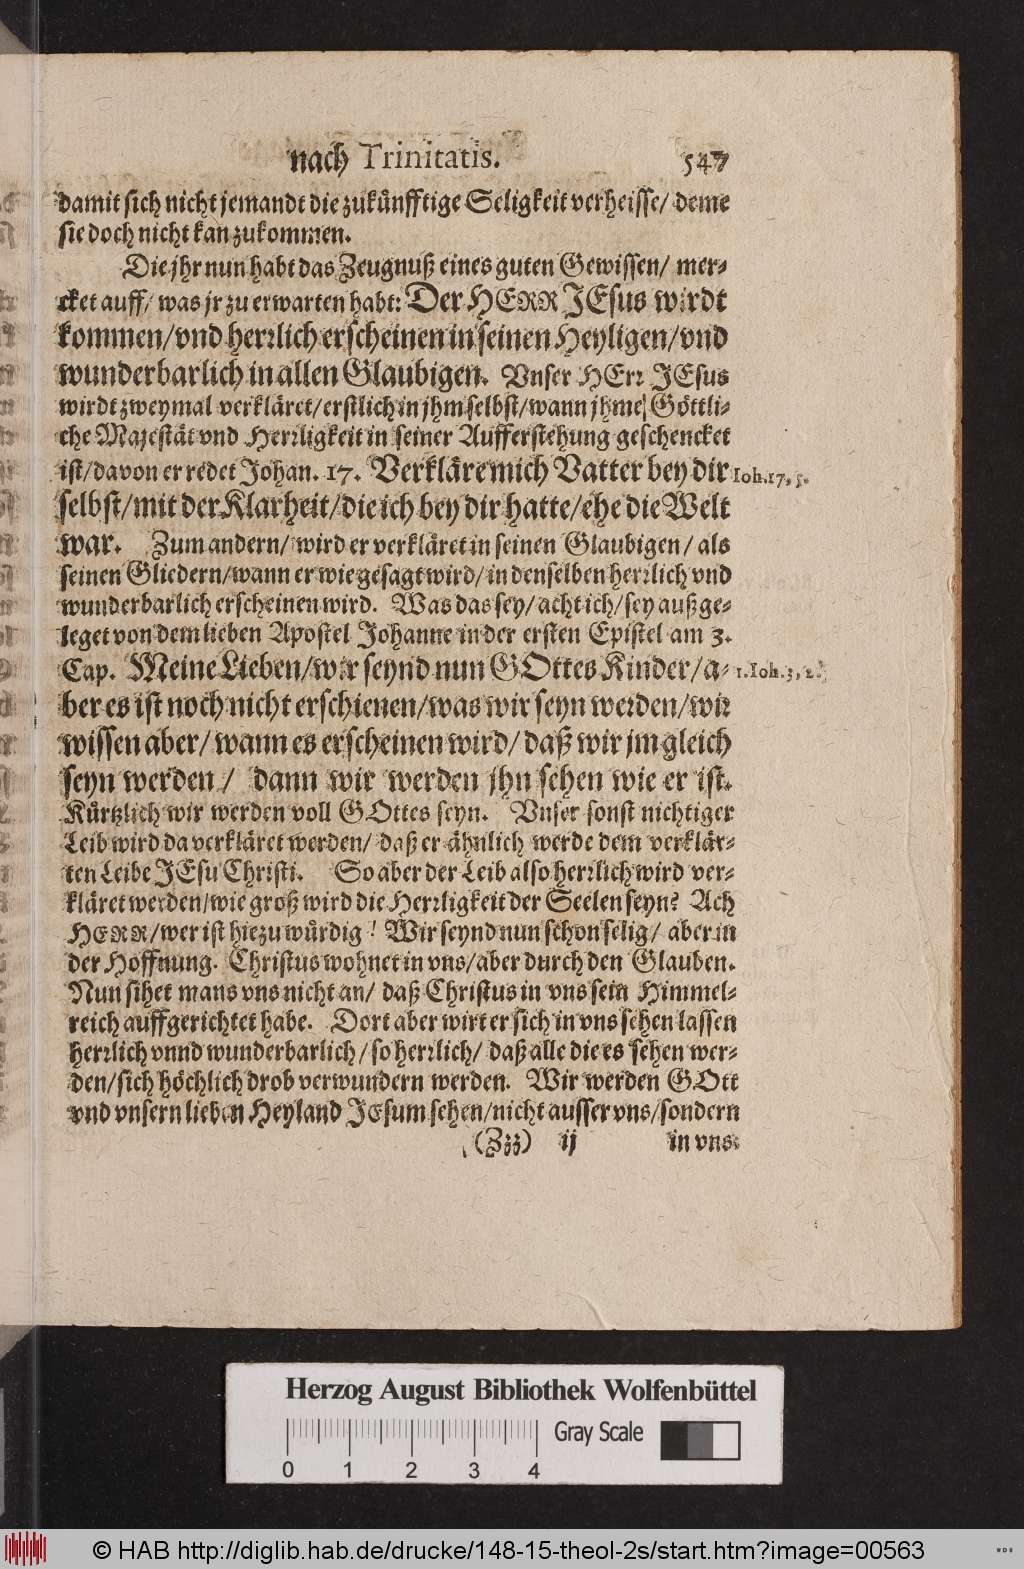 nach Trinitatis. 547
damit sich nicht jemandt die zukünfftige Seligkeit verheisse/ deme
sie doch nicht kan zukommen.
Die jhr nun habt das Zeugnuß eines guten Gewissen/ mer-
cket auff/ was jr zu erwarten habt: Der HERR JEsus wirdt
kommen/vnd herrlich erscheinen in seinen Heyligen/vnd
wunderbarlich in allen Glaubigen. Vnser HErr JEsus
wirdt zweymal verkläret/erstlich in jhm selbst/wann jhme Göttli-
che Majestät vnd Herrligkeit in seiner Aufferstehung geschencket
ist/davon er redet Johan. 17. Verkläre mich Vatter bey dir Ioh.17,5.
selbst/mit der Klarheit/die ich bey dir hatte/ehe die Welt
war. Zum andern/ wird er verkläret in seinen Glaubigen/ als
seinen Gliedern/wann er wie gesagt wird/in denselben herrlich vnd
wunderbarlich erscheinen wird. Was das sey/acht ich/sey außge-
leget von dem lieben Apostel Johanne in der ersten Epistel am 3.
Cap. Meine Lieben/wir seynd nun GOttes Kinder/a- 1.Ioh.3,2.
ber es ist noch nicht erschienen/was wir seyn werden/wir
wissen aber/wann es erscheinen wird/daß wir jm gleich
seyn werden/ dann wir werden jhn sehen wie er ist.
Kürtzlich wir werden voll GOttes seyn. Vnser sonst nichtiger
Leib wird da verkläret werden/ daß er ähnlich werde dem verklär-
ten Leibe JEsu Christi. So aber der Leib also herrlich wird ver-
kläret werden/wie groß wird die Herrligkeit der Seelen seyn? Ach
HERR/wer ist hiezu würdig! Wir seynd nun schon selig/ aber in
der Hoffnung. Christus wohnet in vns/aber durch den Glauben.
Nun sihet mans vns nicht an/ daß Christus in vns sein Himmel-
reich auffgerichtet habe. Dort aber wirt er sich in vns sehen lassen
herrlich vnnd wunderbarlich/so herrlich/ daß alle die es sehen wer-
den/sich höchlich drob verwundern werden. Wir werden GOtt
vnd vnsern lieben Heyland JEsum sehen/nicht ausser vns/sondern
(Zzz) ij in vns:
Herzog August Bibliothek Wolfenbüttel
Gray Scale
0 1 2 3 4
© HAB http://diglib.hab.de/drucke/148-15-theol-2s/start.htm?image=00563